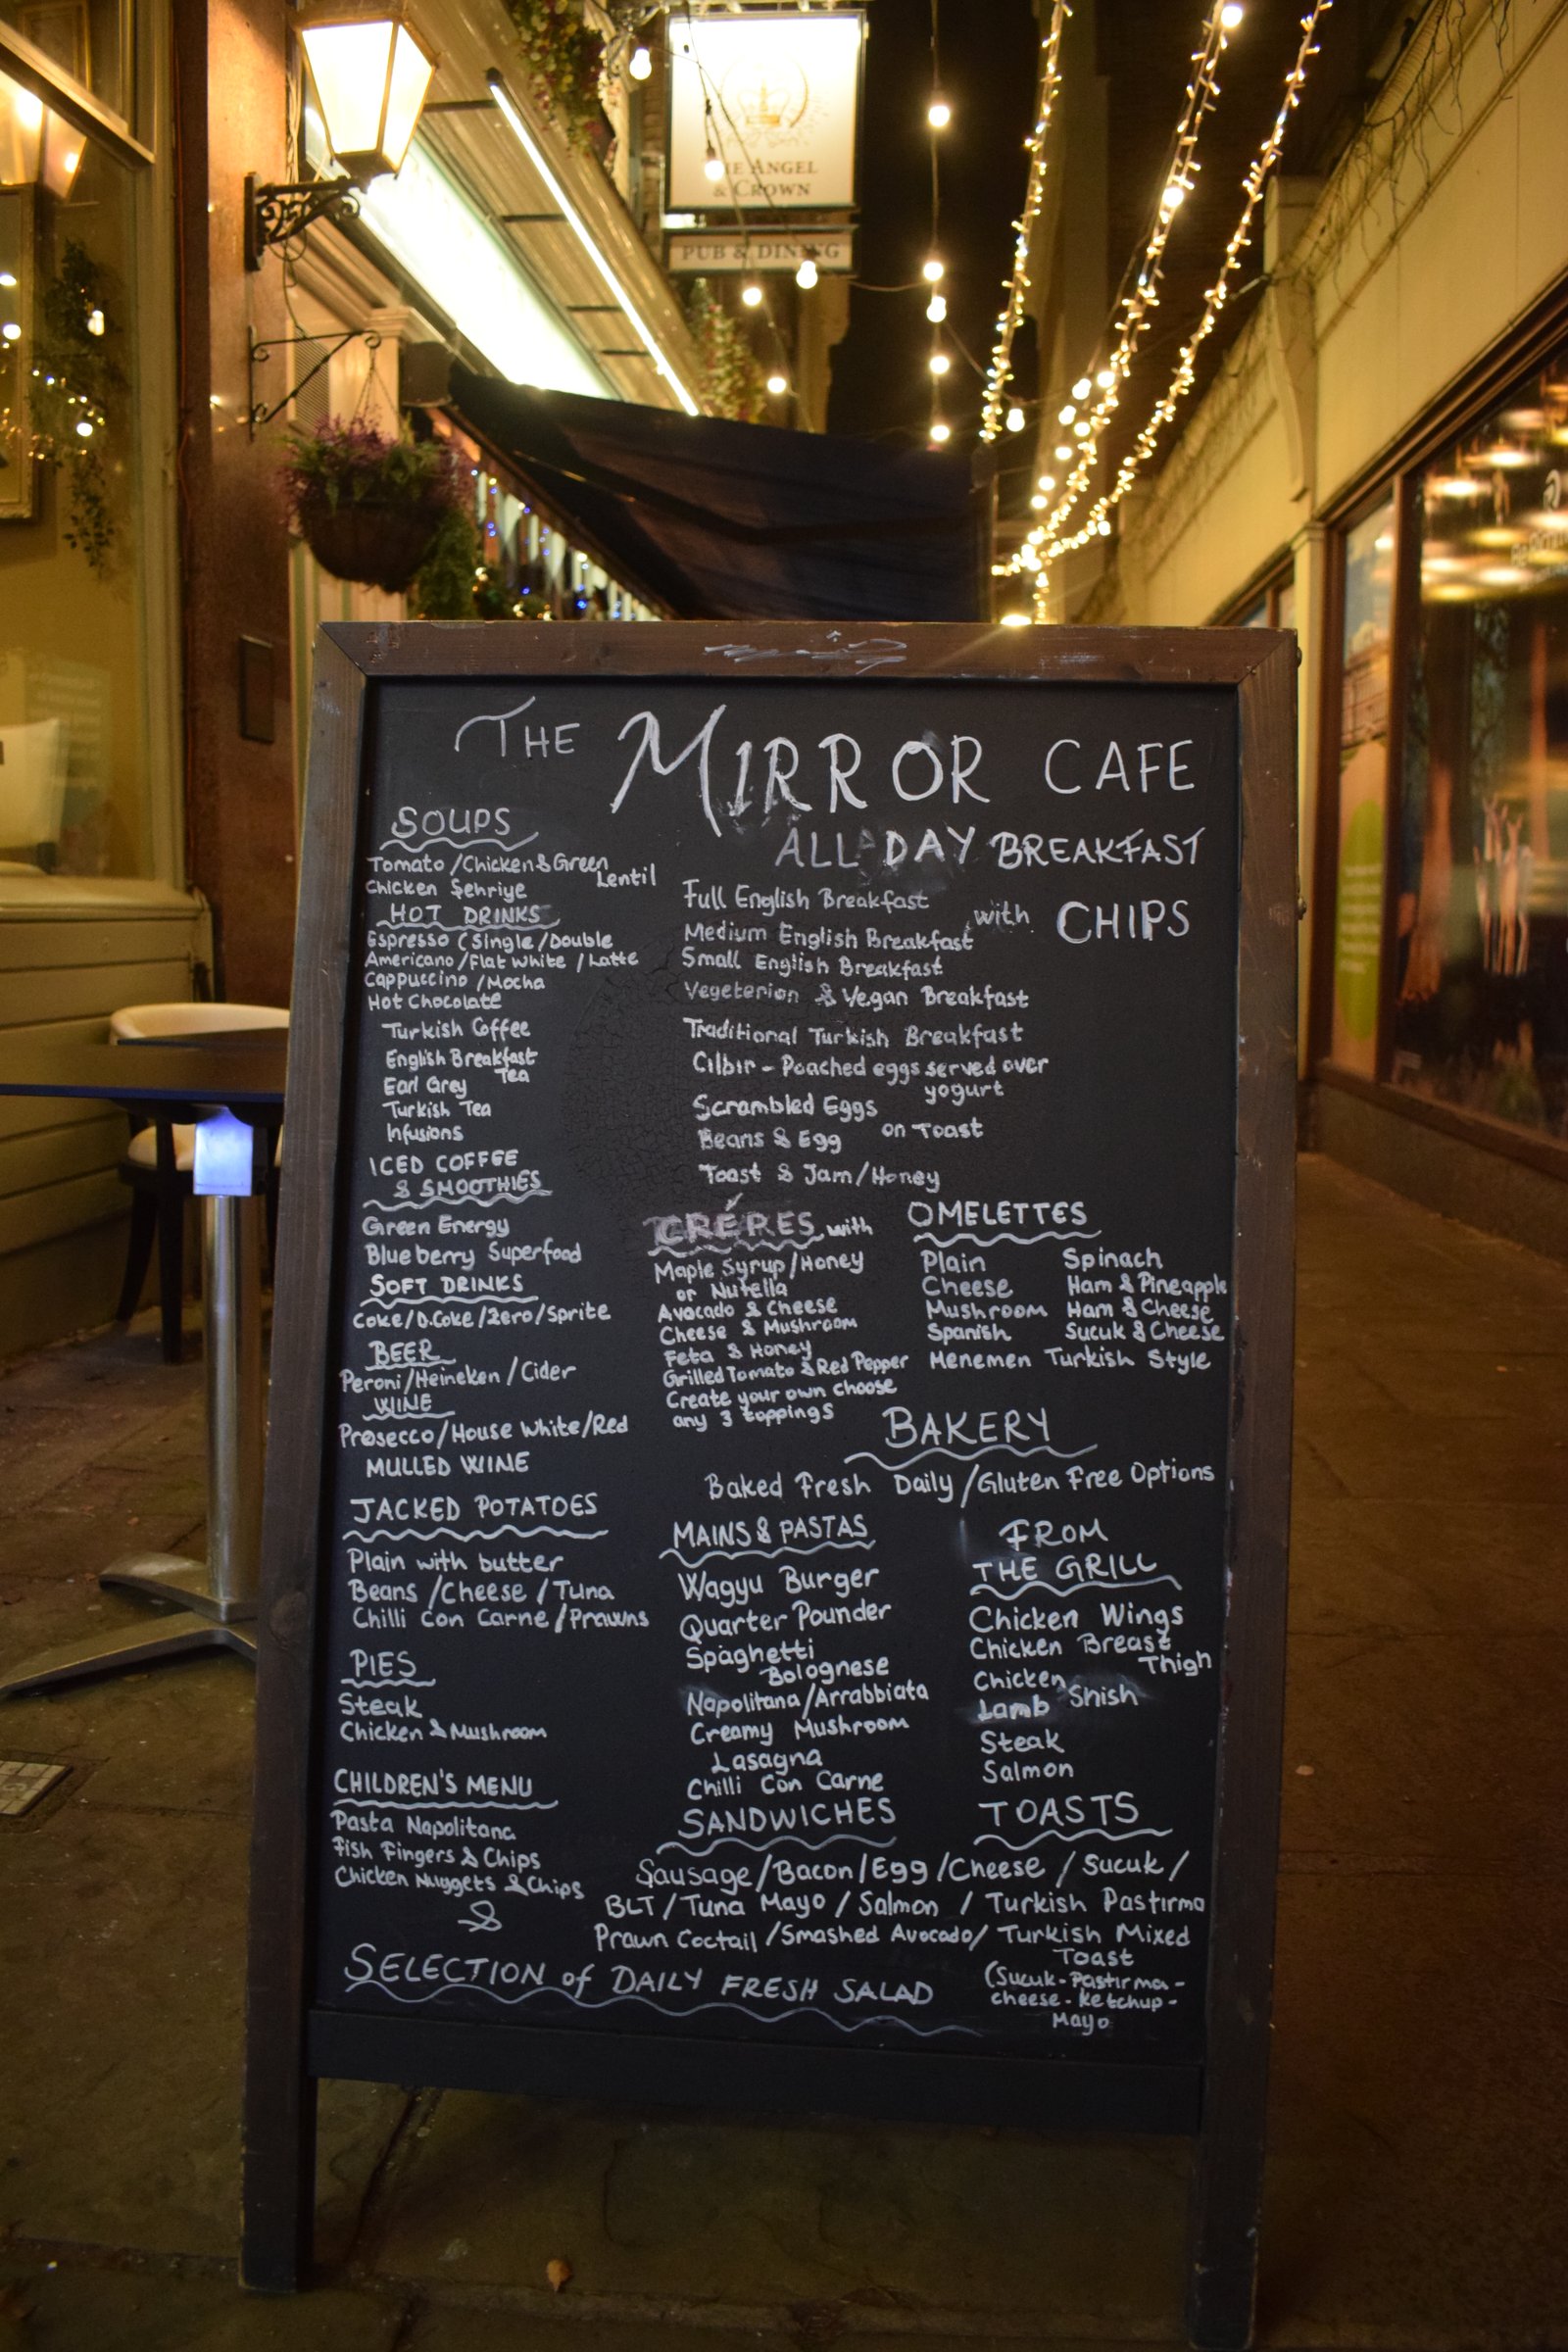 THE ANGEL
& CROWN
PUB & DINING
THE MIRROR CAFE
SOUPS
Tomato/Chicken & Green
Lentil
Chicken Şehriye
HOT DRINKS
Espresso (Single/Double
Americano/Flat White/Latte
Cappuccino/Mocha
Hot Chocolate
Turkish Coffee
English Breakfast
Tea
Earl Grey
Turkish Tea
Infusions
ICED COFFEE
& SMOOTHIES
Green Energy
Blueberry Superfood
SOFT DRINKS
Coke/D.Coke/Zero/Sprite
BEER
Peroni/Heineken/Cider
WINE
Prosecco/House White/Red
MULLED WINE
JACKED POTATOES
Plain with butter
Beans/Cheese/Tuna
Chilli Con Carne/Prawns
PIES
Steak
Chicken & Mushroom
CHILDREN'S MENU
Pasta Napolitana
Fish Fingers & Chips
Chicken Nuggets & Chips
&
SELECTION of DAILY FRESH SALAD
ALL DAY BREAKFAST
Full English Breakfast
with CHIPS
Medium English Breakfast
Small English Breakfast
Vegeterian & Vegan Breakfast
Traditional Turkish Breakfast
Cilbir - Poached eggs served over
yogurt
Scrambled Eggs
on Toast
Beans & Egg
Toast & Jam/Honey
CRÉPES with
Maple Syrup/Honey
or Nutella
Avocado & Cheese
Cheese & Mushroom
Feta & Honey
Grilled Tomato & Red Pepper
Create your own choose
any 3 toppings
OMELETTES
Plain Spinach
Cheese Ham & Pineapple
Mushroom Ham & Cheese
Spanish Sucuk & Cheese
Menemen Turkish Style
BAKERY
Baked Fresh Daily/Gluten Free Options
MAINS & PASTAS
Wagyu Burger
Quarter Pounder
Spaghetti
Bolognese
Napolitana/Arrabbiata
Creamy Mushroom
Lasagna
Chilli Con Carne
FROM
THE GRILL
Chicken Wings
Chicken Breast
Thigh
Chicken
Shish
Lamb
Steak
Salmon
SANDWICHES TOASTS
Sausage/Bacon/Egg/Cheese/Sucuk/
BLT/Tuna Mayo/Salmon/Turkish Pastırma
Prawn Coctail/Smashed Avocado/Turkish Mixed
Toast
(Sucuk-Pastırma-
cheese-Ketchup-
Mayo